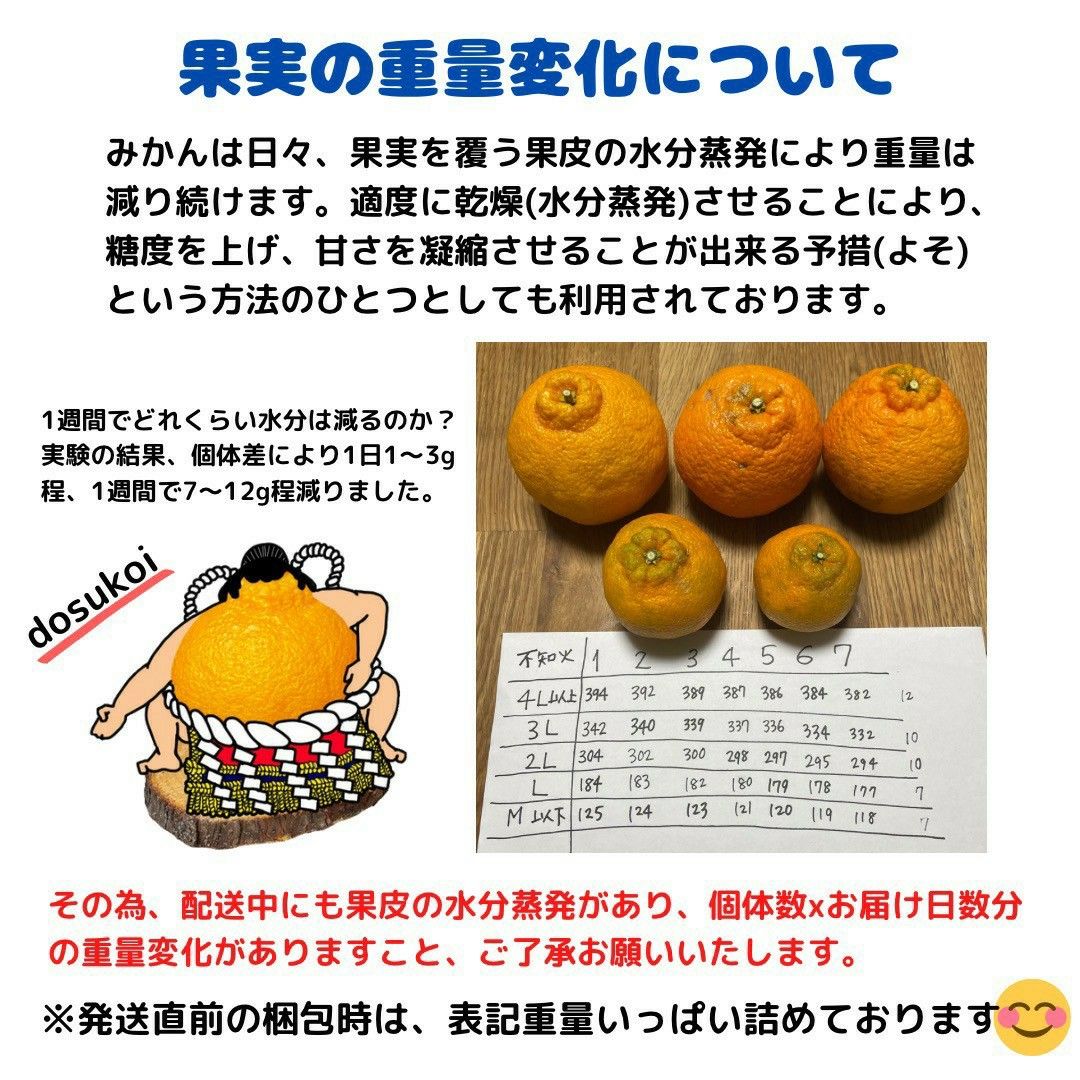 果実の重量変化について
みかんは日々、果実を覆う果皮の水分蒸発により重量は
減り続けます。適度に乾燥(水分蒸発)させることにより、
糖度を上げ、甘さを凝縮させることが出来る予措(よそ)
という方法のひとつとしても利用されております。
1週間でどれくらい水分は減るのか？
実験の結果、個体差により1日1〜3g
程、1週間で7〜12g程減りました。
dosukoi
不知火 1 2 3 4 5 6 7
4L以上 394 392 389 387 386 384 382 12
3L 342 340 339 337 336 334 332 10
2L 304 302 300 298 297 295 294 10
L 184 183 182 180 179 178 177 7
M以下 125 124 123 121 120 119 118 7
その為、配送中にも果皮の水分蒸発があり、個体数xお届け日数分
の重量変化がありますこと、ご了承お願いいたします。
※発送直前の梱包時は、表記重量いっぱい詰めております